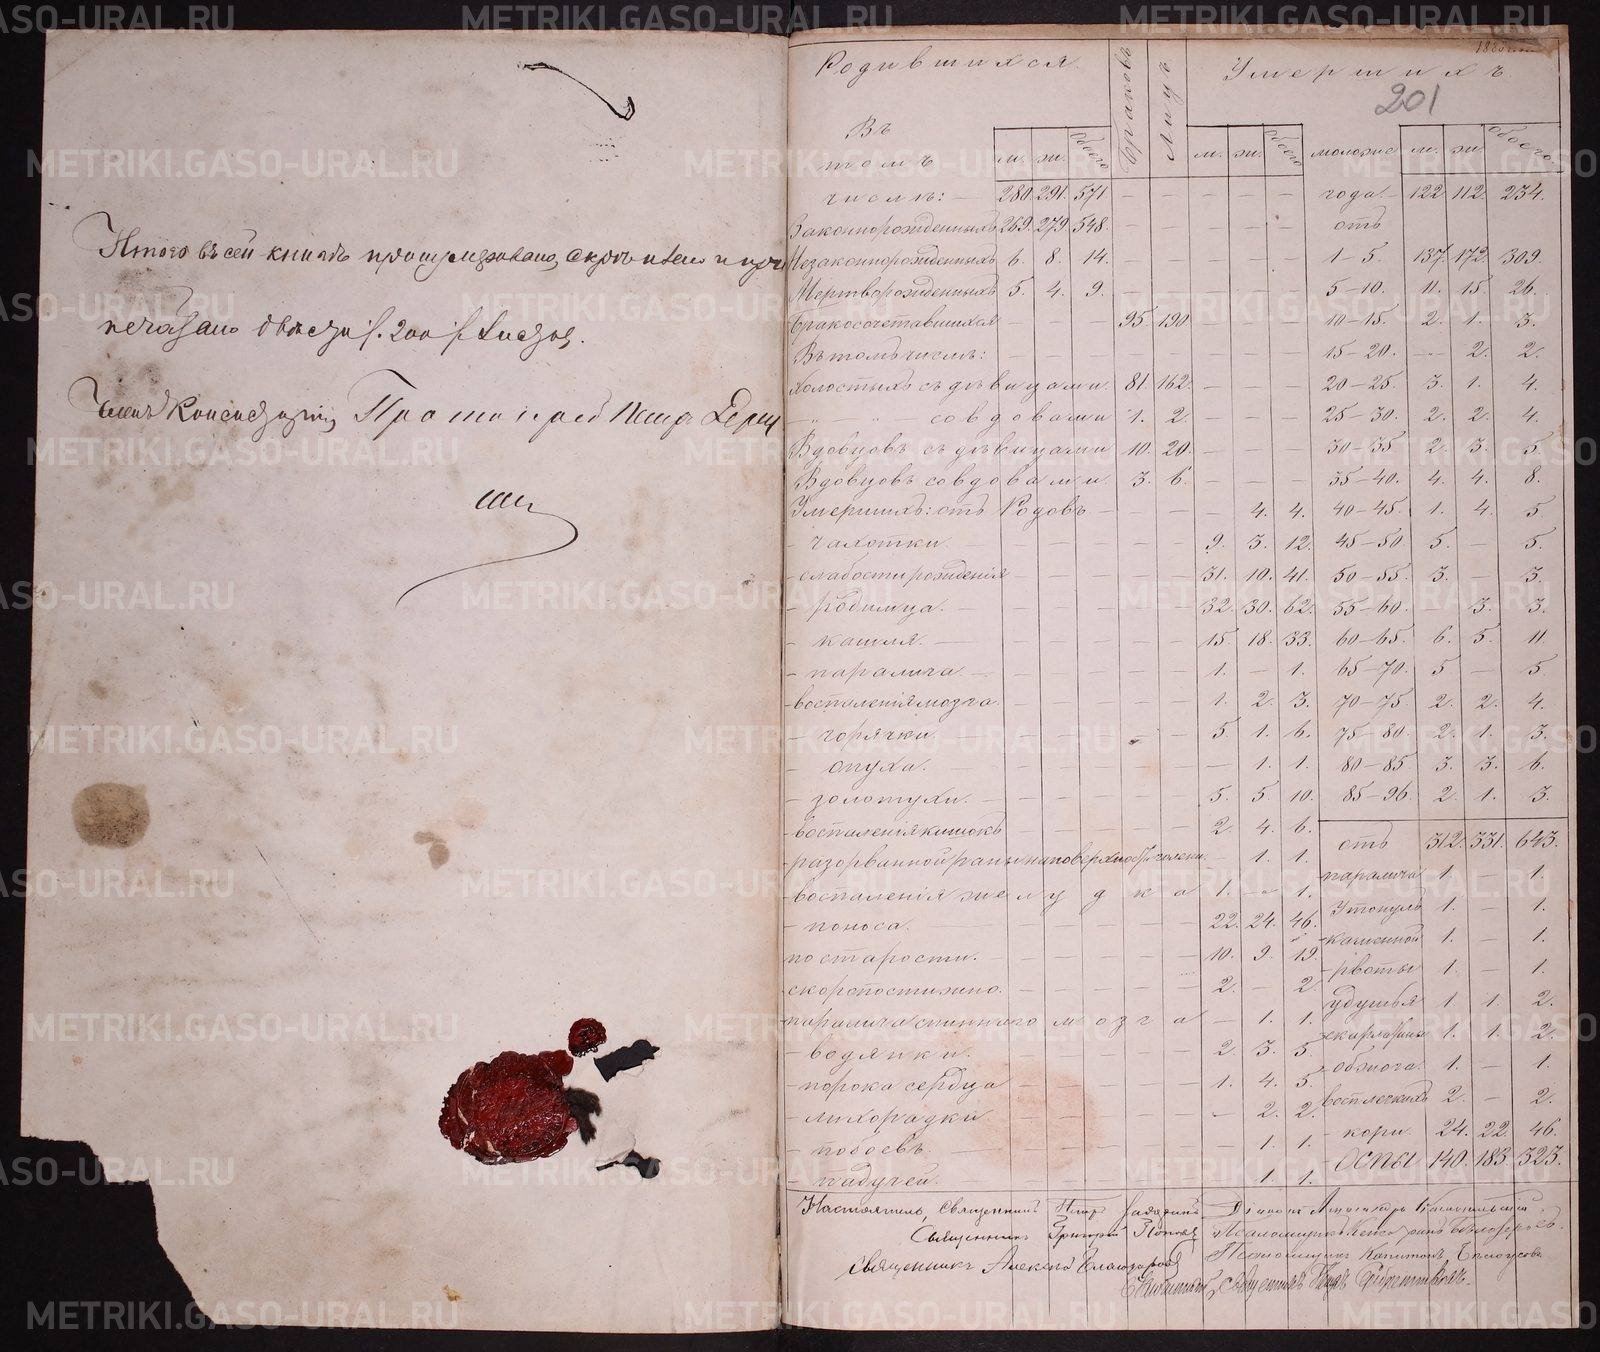 Итого въ сей книгѣ пронумеровано, скрѣплено и при
печатано двѣсти /. 200 ./ листовъ.
Членъ Консисторіи Протоіерей Петръ
201
Родившихся Браковъ Лицъ Умершихъ
Въ
томъ м. ж. обоего м. ж. обоего моложе м. ж. обоего
числѣ: — 280. 291. 571. — — — — — года. — 122. 112. 234.
Законнорожденныхъ 269. 279. 548. — — — — — отъ
Незаконнорожденныхъ 6. 8. 14. — — — — — 1–5. 137. 172. 309.
Мертворожденныхъ 5. 4. 9. — — — — — 5–10. 11. 15. 26.
Бракосочетавшихся — — — 95. 190. — — — 10–15. 2. 1. 3.
Въ томъ числѣ: — — — — — — — — 15–20. — 2. 2.
Холостыхъ съ дѣвицами. 81. 162. — — — 20–25. 3. 1. 4.
„ „ со вдовами 1. 2. — — — 25–30. 2. 2. 4.
Вдовцовъ съ дѣвицами 10. 20. — — — 30–35. 2. 3. 5.
Вдовцовъ со вдовами. 3. 6. — — — 35–40. 4. 4. 8.
Умершихъ: отъ Родовъ — — — — — 4. 4. 40–45. 1. 4. 5.
- чахотки — — — — — 9. 3. 12. 45–50. 5. — 5.
- слабости рожденія — — — — — 31. 10. 41. 50–55. 3. — 3.
- родимца. — — — — — 32. 30. 62. 55–60. — 3. 3.
- кашля. — — — — — 15. 18. 33. 60–65. 6. 5. 11.
- паралича — — — — — 1. — 1. 65–70. 5 — 5
- воспаленія мозга. — — — — — 1. 2. 3. 70–75. 2. 2. 4.
- горячки — — — — — 5. 1. 6. 75–80. 2. 1. 3.
- опуха. — — — — — — 1. 1. 80–85. 3. 3. 6.
- золотухи. — — — — — 5. 5. 10. 85–96. 2. 1. 3.
- воспаленія кишокъ — — — — — 2. 4. 6. отъ 312. 331. 643.
- разорванной раны на поверхности голени. — 1. 1. паралича 1. — 1.
- воспаленія желудка 1. — 1. Утонулъ 1. — 1.
- поноса. — — — — — 22. 24. 46. - каменной 1. — 1.
по старости. — — — — — 10. 9. 19. - рвоты 1. — 1.
- скоропостижно. — — — — — 2. — 2. удушья 1. 1. 2.
- паралича спиннаго мозга — 1. 1. скарлатины 1. 1. 2.
- водянки. — — — — — 2. 3. 5. - обжога. 1. — 1.
- порока сердца — — — — — 1. 4. 5. воспл легкихъ 2. — 2.
- лихорадки — — — — — — 2. 2. - кори. 24. 22. 46.
- побоевъ. — — — — — — 1. 1. Оспы 140. 183. 323.
- падучей. — — — — — — 1. 1.
Настоятель, Священникъ Петръ Діаконъ
Священникъ Григорій Поповъ Псаломщикъ
Священникъ Алексѣй Псаломщикъ Капитонъ Бѣлоусовъ